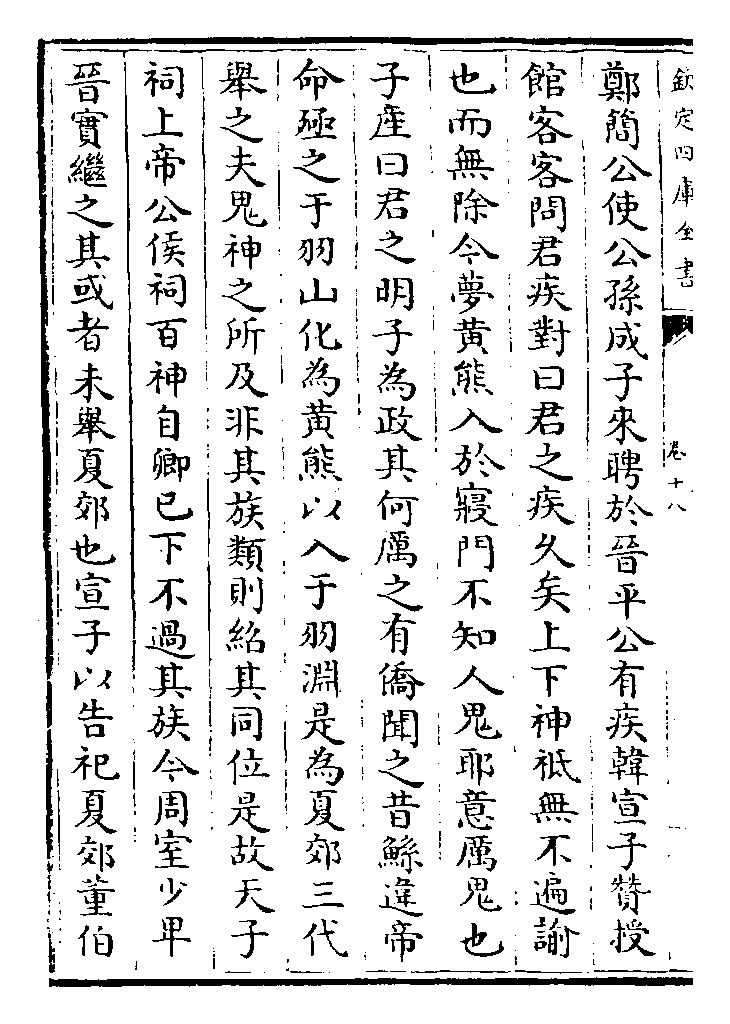 欽定四庫全書
卷十八
鄭簡公使公孫成子來聘於晉平公有疾韓宣子贊授
館客客問君疾對曰君之疾久矣上下神祗無不遍諭
也而無除今夢黃熊入於寢門不知人鬼耶意厲鬼也
子產曰君之明子為政其何厲之有僑聞之昔鯀違帝
命殛之于羽山化為黃熊以入于羽淵是為夏郊三代
舉之夫鬼神之所及非其族類則紹其同位是故天子
祠上帝公侯祠百神自卿已下不過其族今周室少卑
晉實繼之其或者未舉夏郊也宣子以告祀夏郊董伯